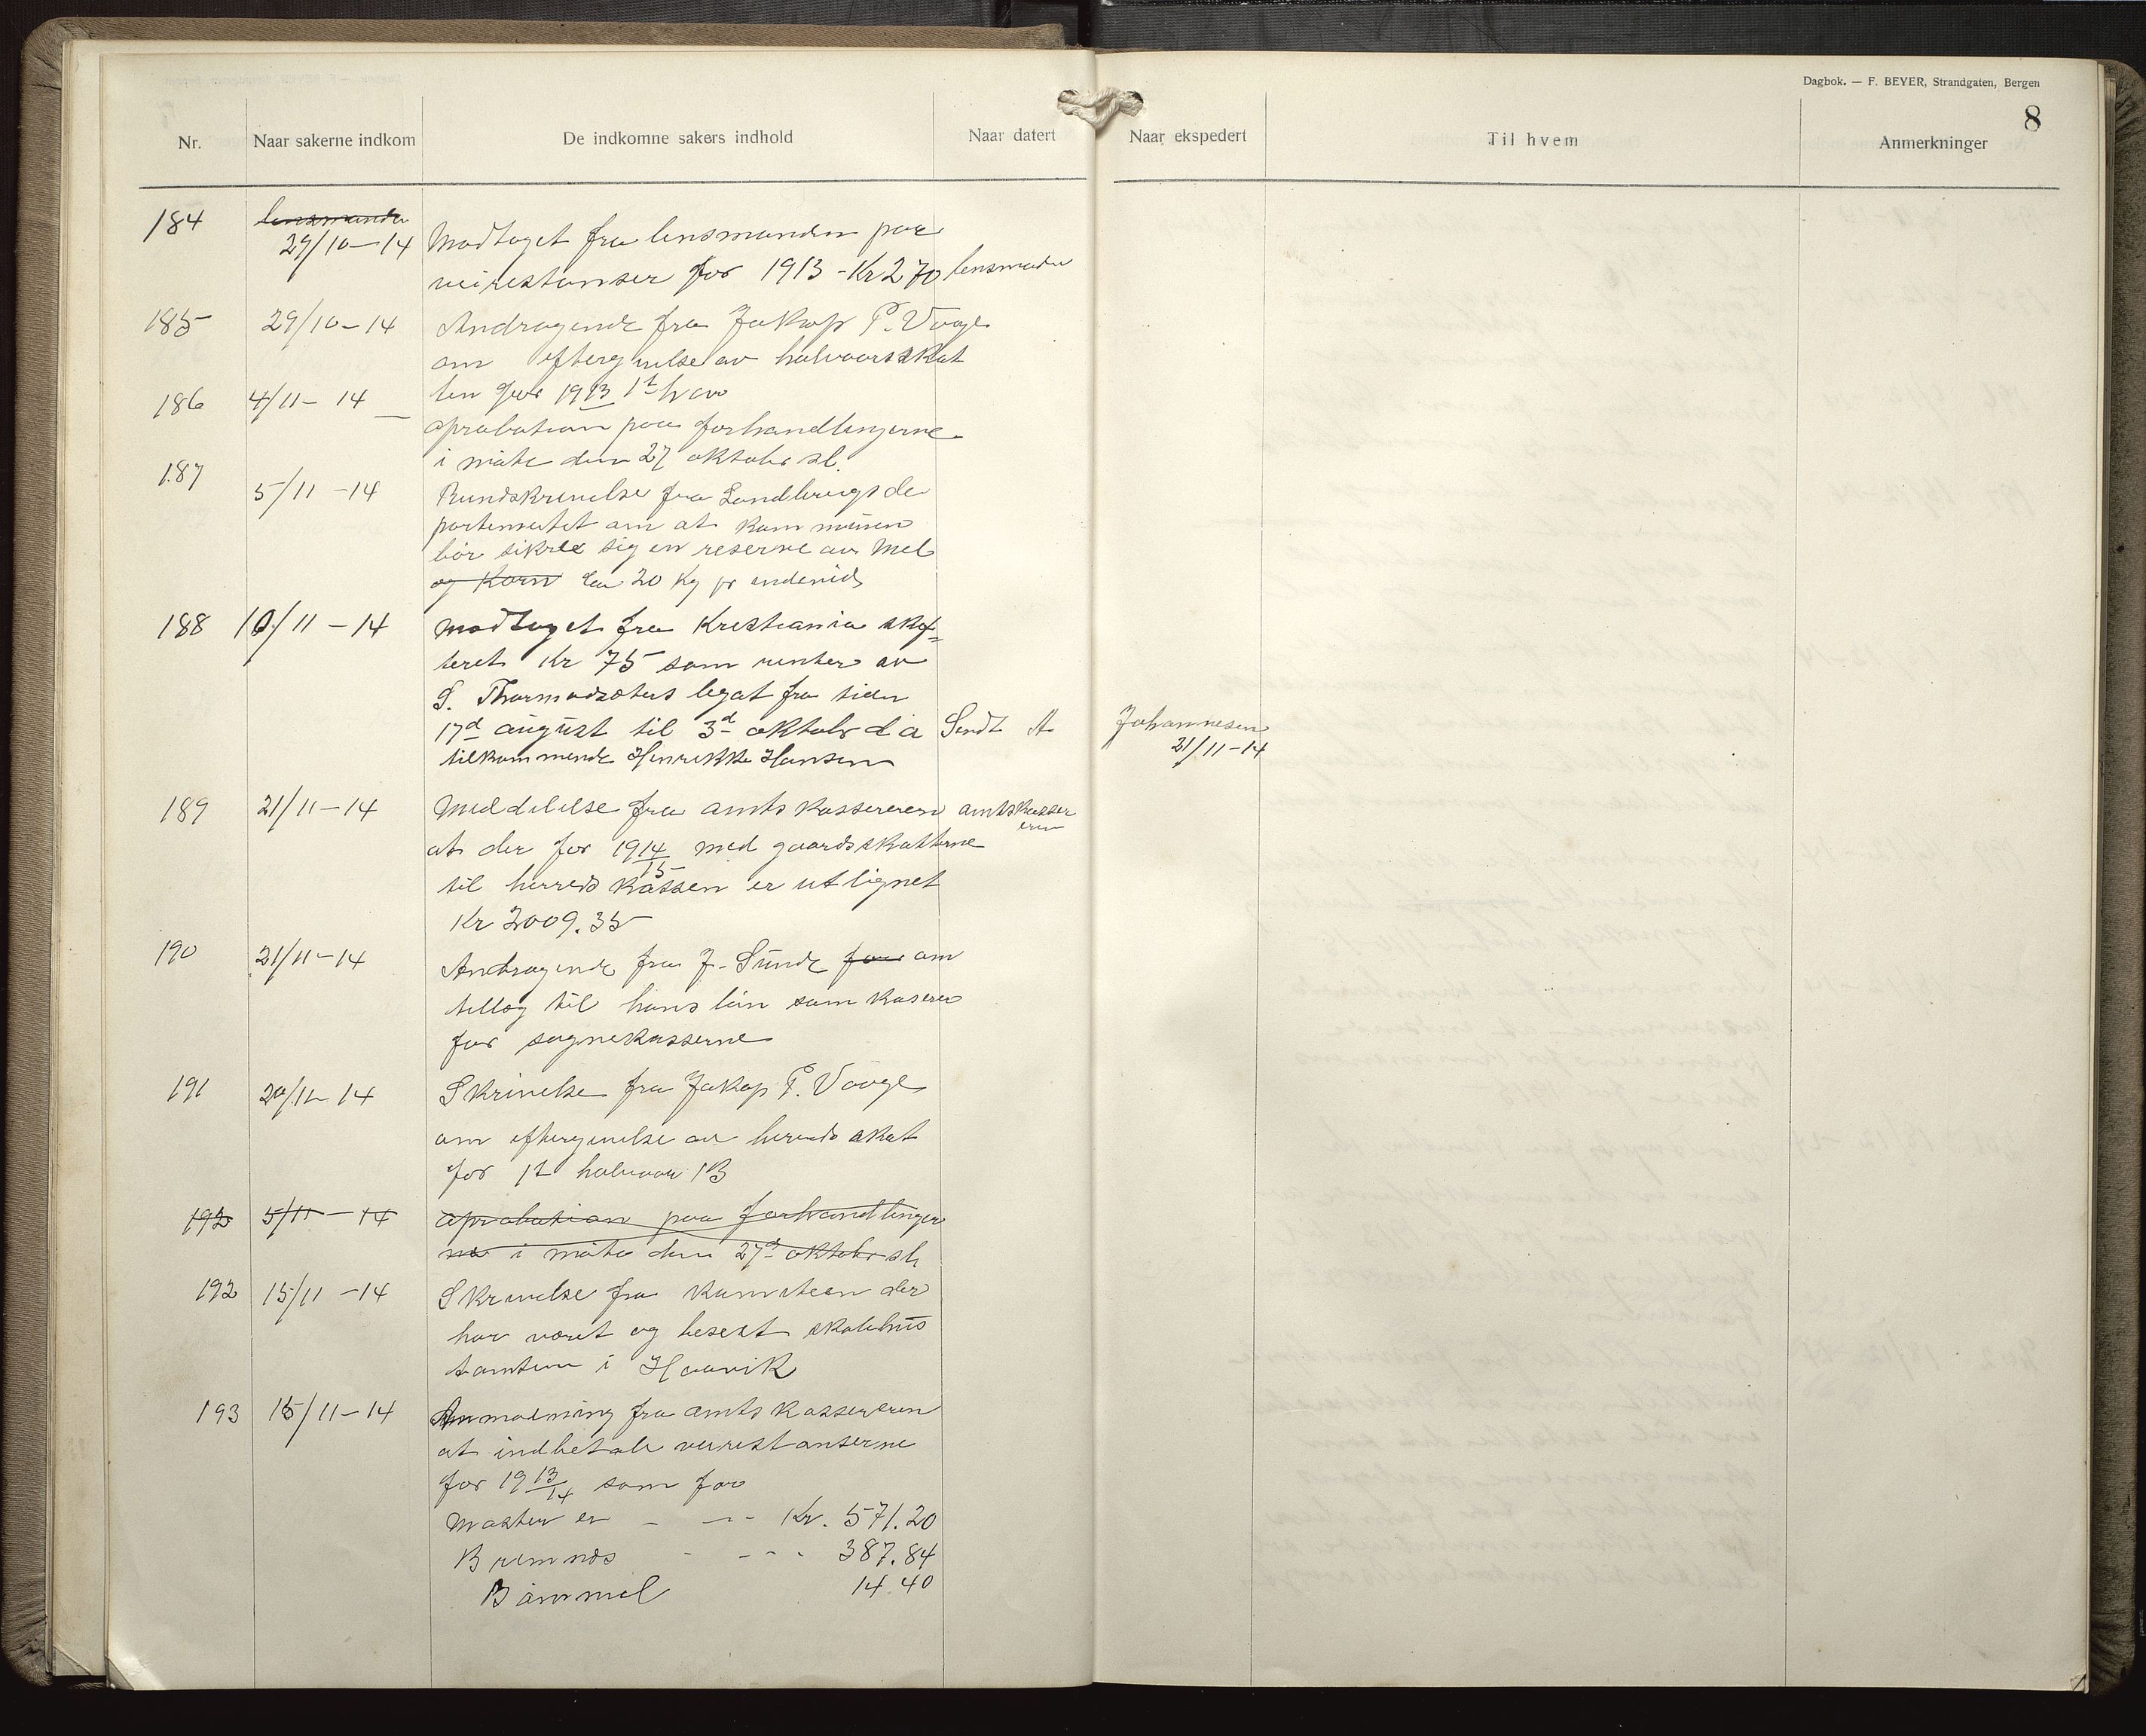 Dagbok. — F. BEYER, Strandgaten, Bergen
8
Nr. Naar sakerne indkom De indkomne sakers indhold Naar datert Naar ekspedert Til hvem Anmerkninger
184 lensmanden
29/10-14 Modtaget fra lensmanden paa
veirestanser for 1913 - Kr 270 lensmanden
185 29/10-14 Andragende fra Jakop P. Vaage
om eftergivelse av halvaarsskat
186 4/11-14 ten for 1913 1ste
aprobation paa forhandlingerne
i møte den 27 oktobr sl.
187 5/11-14 Rundskrivelse fra Landbrugsde
partementet om at kommunen
bør sikre sig en reserve av Mel
og Korn ca 20 Kg pr individ
188 10/11-14 Modtaget fra Kristiania skif=
teret Kr 75 som renter av
S. Thormodsæters legat fra tiden
17d august til 3d oktobr d a Sendt A. Johannesen
tilkommende Henrikke Hansen 21/11-14
189 21/11-14 Meddelelse fra amtskassereren amtskasser
eren
at der for 1914/15 med gaardsskatterne
til herredskassen er utlignet
Kr 2009.35
190 21/11-14 Andragende fra J. Sunde om
tillæg til hans løn som kaserer
for sognekasserne
191 20/11-14 Skrivelse fra Jakop P. Vaage
om eftergivelse av herredsskat
for 1st halvaar 13
192 5/11-14 aprobation paa forhandlinger
ne i møte den 27d oktobr sl
192 15/11-14 Skrivelse fra der
har været og beseet skolehus
tomten i Haavik
193 15/11-14 Anmodning fra amtskassereren
at indbetale veirestanserne
for 1913/14 som for
Moster er - - - Kr. 571.20
Bremnes - - - - 387.84
Bømmel 14.40